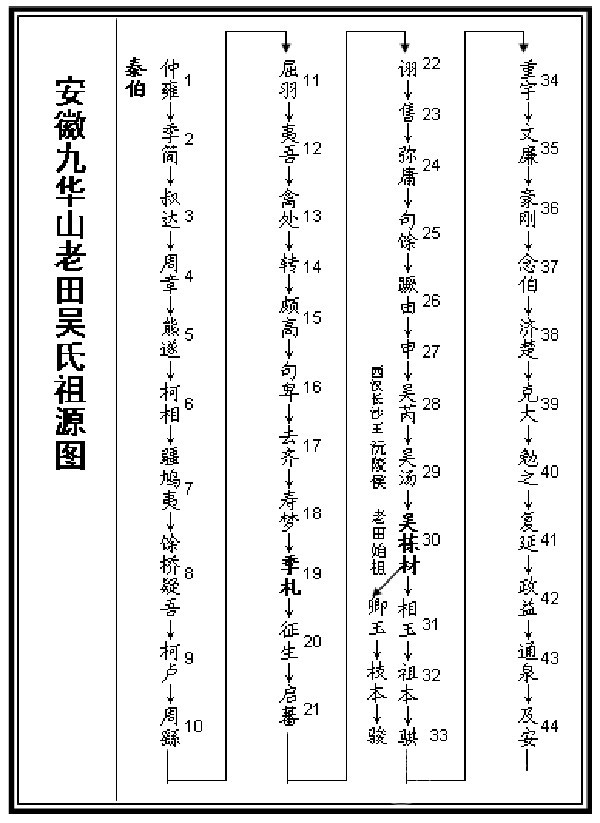 安徽九华山老田吴氏祖源图
泰伯
仲雍 1
季简 2
叔达 3
周章 4
熊遂 5
柯相 6
疆鸠夷 7
馀桥疑吾 8
柯卢 9
周繇 10
屈羽 11
夷吾 12
禽处 13
转 14
颇高 15
句卑 16
去齐 17
寿梦 18
季札 19
征生 20
启蕃 21
诩 22
隽 23
弥庸 24
句馀 25
蹶由 26
申 27
吴芮 28
吴汤 29
吴栋材 30
相玉 31
祖本 32
騏 33
西汉长沙王
沅陵侯
老田始祖
卿玉
枝本
骏
重宇 34
文廉 35
豪刚 36
念伯 37
济楚 38
克大 39
勉之 40
复延 41
政益 42
通泉 43
及安 44